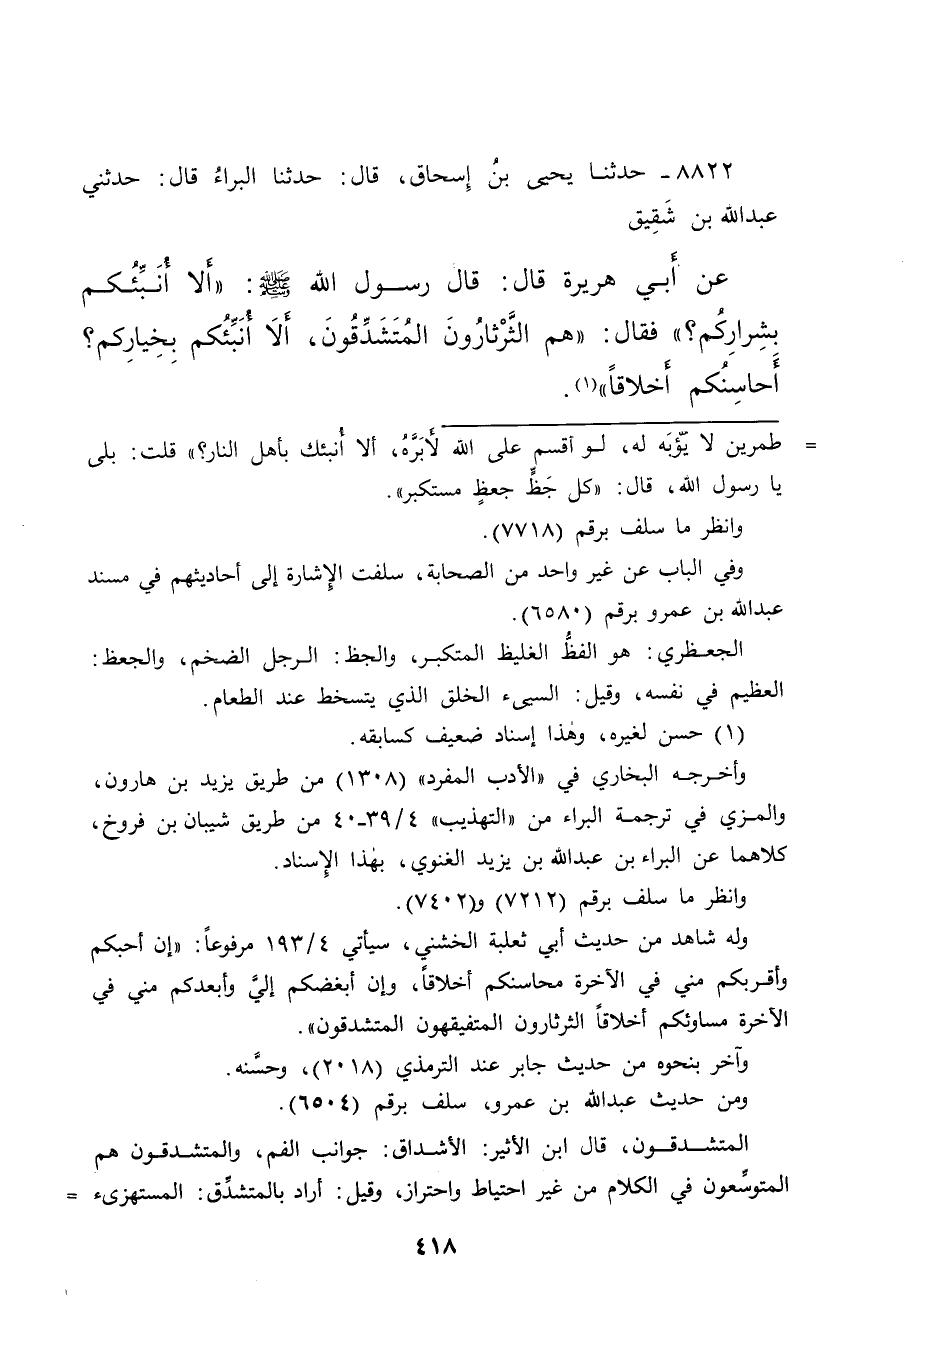 ٨٨٢٢ـ حدثنـا يحيى بنُ إسحاق، قال: حدثنا البراءُ قال: حدثني
عبدالله بن شَقِيق
عن أَبـي هريرة قال: قال رسـول الله ﷺ: «أَلا أُنَـبِّئُـكـم
بِشرارِكُم؟» فقال: «هم الثَّرْثارُونَ المُتَشَدِّقُونَ، أَلَا أُنَبِّئُكم بِخِيارِكم؟
أَحاسِنُكم أَخلاقاً»(١).
= طمرين لا يُؤبَه له، لـو أقسم على الله لأَبَرَّهُ، ألا أُنبئك بأهل النار؟» قلت: بلى
يا رسول الله، قال: «كل جَظٍّ جعظٍ مستكبر».
وانظر ما سلف برقم (٧٧١٨).
وفي الباب عن غير واحد من الصحابة، سلفت الإشارة إلى أحاديثهم في مسند
عبدالله بن عمرو برقم (٦٥٨٠).
الجعـظري: هو الفظُّ الغليظ المتكبـر، والجظ: الـرجل الضخم، والجعظ:
العظيم في نفسه، وقيل: السيىء الخلق الذي يتسخط عند الطعام.
(١) حسن لغيره، وهٰذا إسناد ضعيف كسابقه.
وأخـرجـه البخاري في «الأدب المفرد» (١٣٠٨) من طريق يزيد بن هارون،
والمـزي في ترجمـة البراء من «التهذيب» ٣٩/٤ـ٤٠ من طريق شيبان بن فروخ،
كلاهما عن البراء بن عبدالله بن يزيد الغنوي، بهٰذا الإسناد.
وانظر ما سلف برقم (٧٢١٢) و(٧٤٠٢).
وله شاهد من حديث أبي ثعلبة الخشني، سيأتي ١٩٣/٤ مرفوعاً: «إن أحبكم
وأقـربكم مني في الآخرة محاسنكم أخلاقاً، وإن أبغضكم إليَّ وأبعدكم مني في
الآخرة مساوئكم أخلاقاً الثرثارون المتفيقهون المتشدقون».
وآخر بنحوه من حديث جابر عند الترمذي (٢٠١٨)، وحسَّنه.
ومن حديث عبدالله بن عمرو، سلف برقم (٦٥٠٤).
المتشـدقـون، قال ابن الأثير: الأشـداق: جوانب الفم، والمتشـدقـون هم
المتوسِّعون في الكلام من غير احتياط واحتراز، وقيل: أراد بالمتشدِّق: المستهزىء =
٤١٨